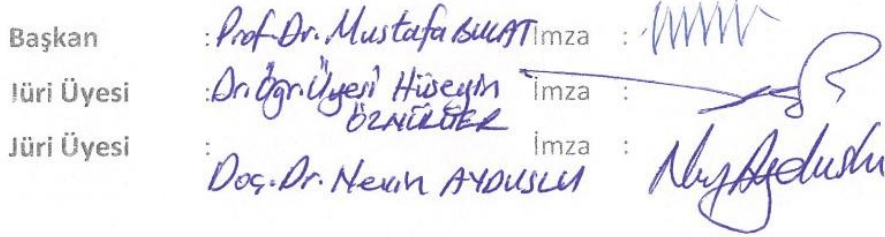 Başkan : Prof. Dr. Mustafa BULAT İmza :
Jüri Üyesi : Dr. Öğr. Üyesi Hüseyin İmza :
Jüri Üyesi : İmza :
Doç. Dr. Nevin AYDUSLU